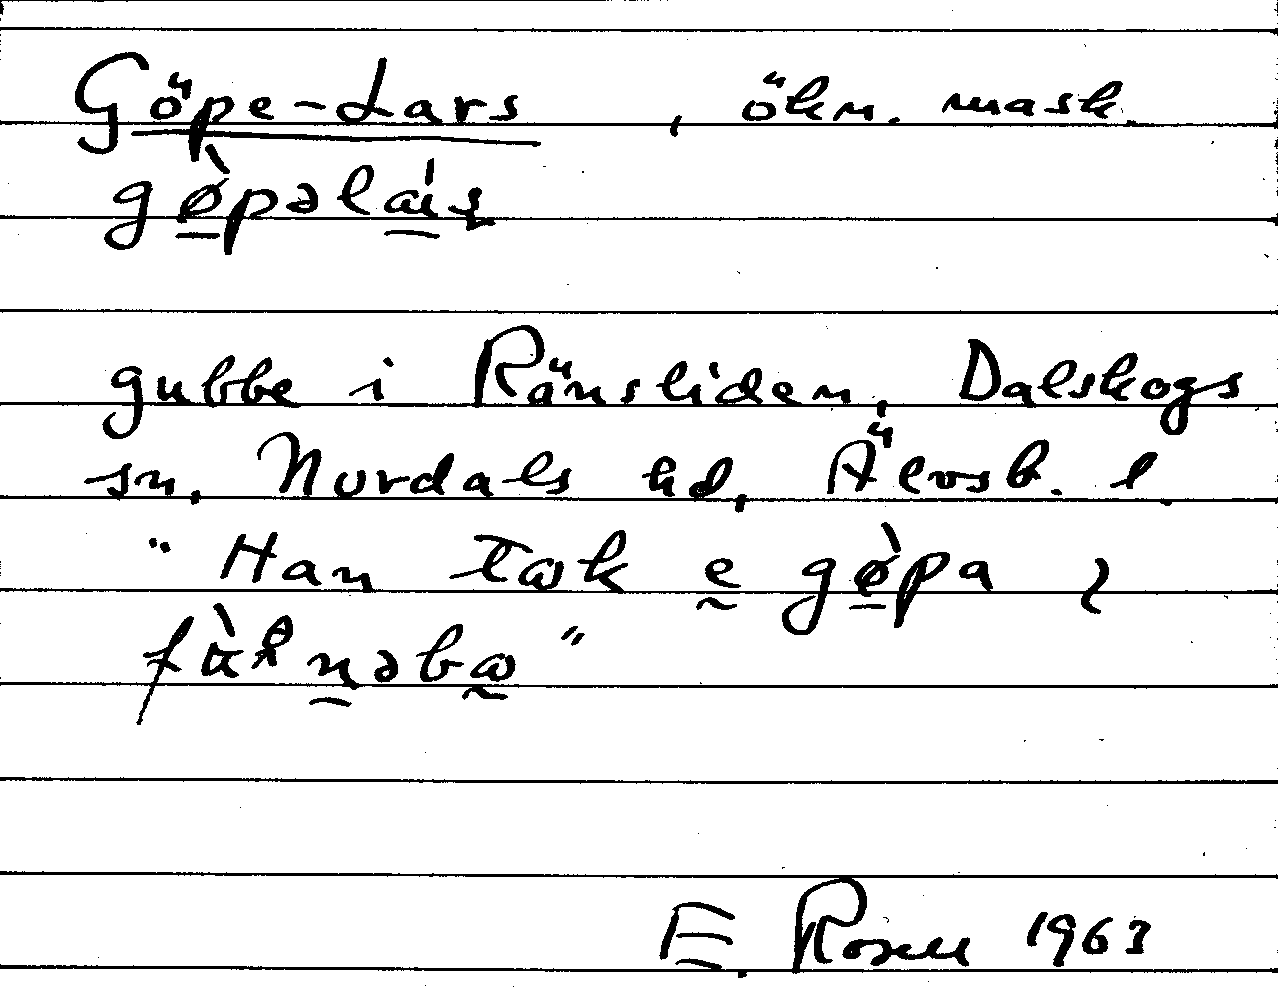 Göpe-Lars, ökn. mask.
gø̀pəlas
gubbe i Ränsliden, Dalskogs
sn, Nordals hd, Älvsb. l.
"Han tɷk e gø̀pa
E. Rosell 1963